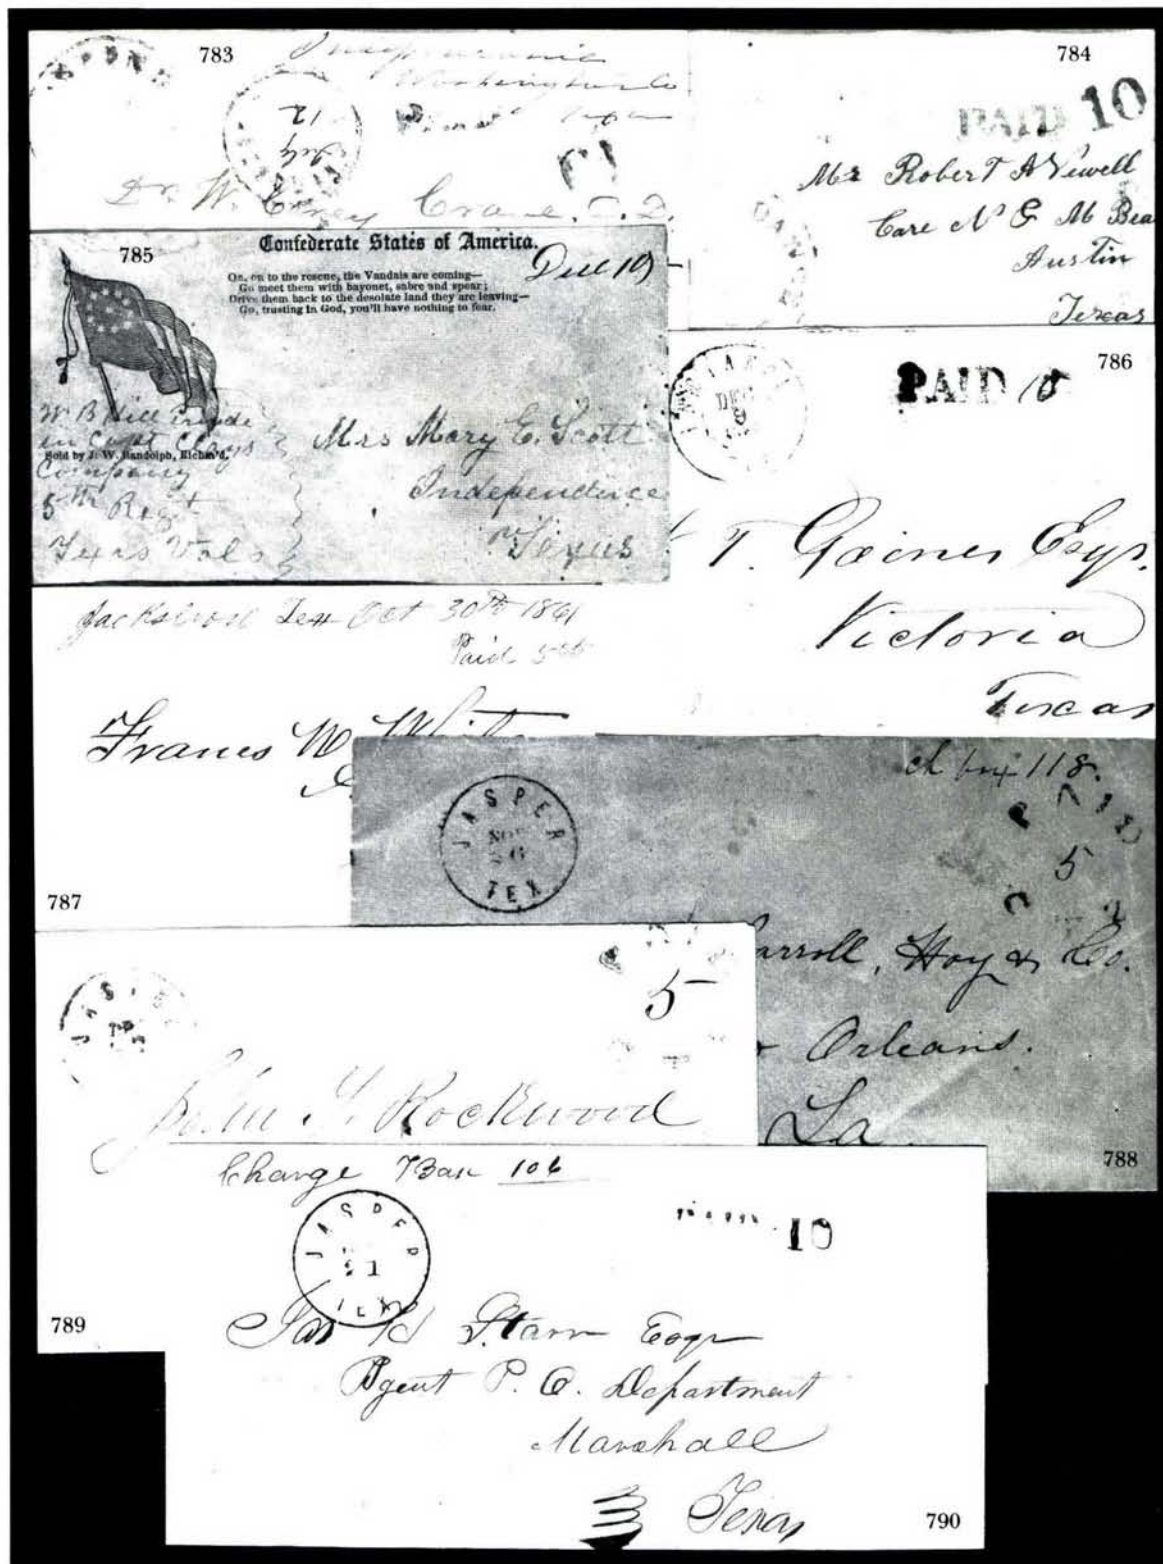 783
Washington Co
12
July
Dr. W. Carey Crane, D. D.
784
PAID 10
Mr Robert A Newell
Care N G M Bea
Austin
Texas
785
Confederate States of America.
Due 10
On, on to the rescue, the Vandals are coming—
Go meet them with bayonet, sabre and spear;
Drive them back to the desolate land they are leaving—
Go, trusting in God, you'll have nothing to fear.
W B Hill
in Capt Clays
Sold by J. W. Randolph, Richm'd.
Company
5th Regt
Texas Vols
Mrs Mary E. Scott
Independence
Texas
786
DEC
9
PAID 10
T. Gaines Esqr.
Victoria
Texas
Oct 30th 1861
Paid 5cts
Frances W. Whit
787
ch box 118.
JASPER
NOV
26
TEX
PAID
5
arroll, Hoy & Co.
Orleans.
La
788
JASPER
5
John G. Rockwood
789
Charge Box 106
JASPER
21
TEX
10
Jas H Starr Esqr
Agent P. O. Department
Marshall
Texas
790